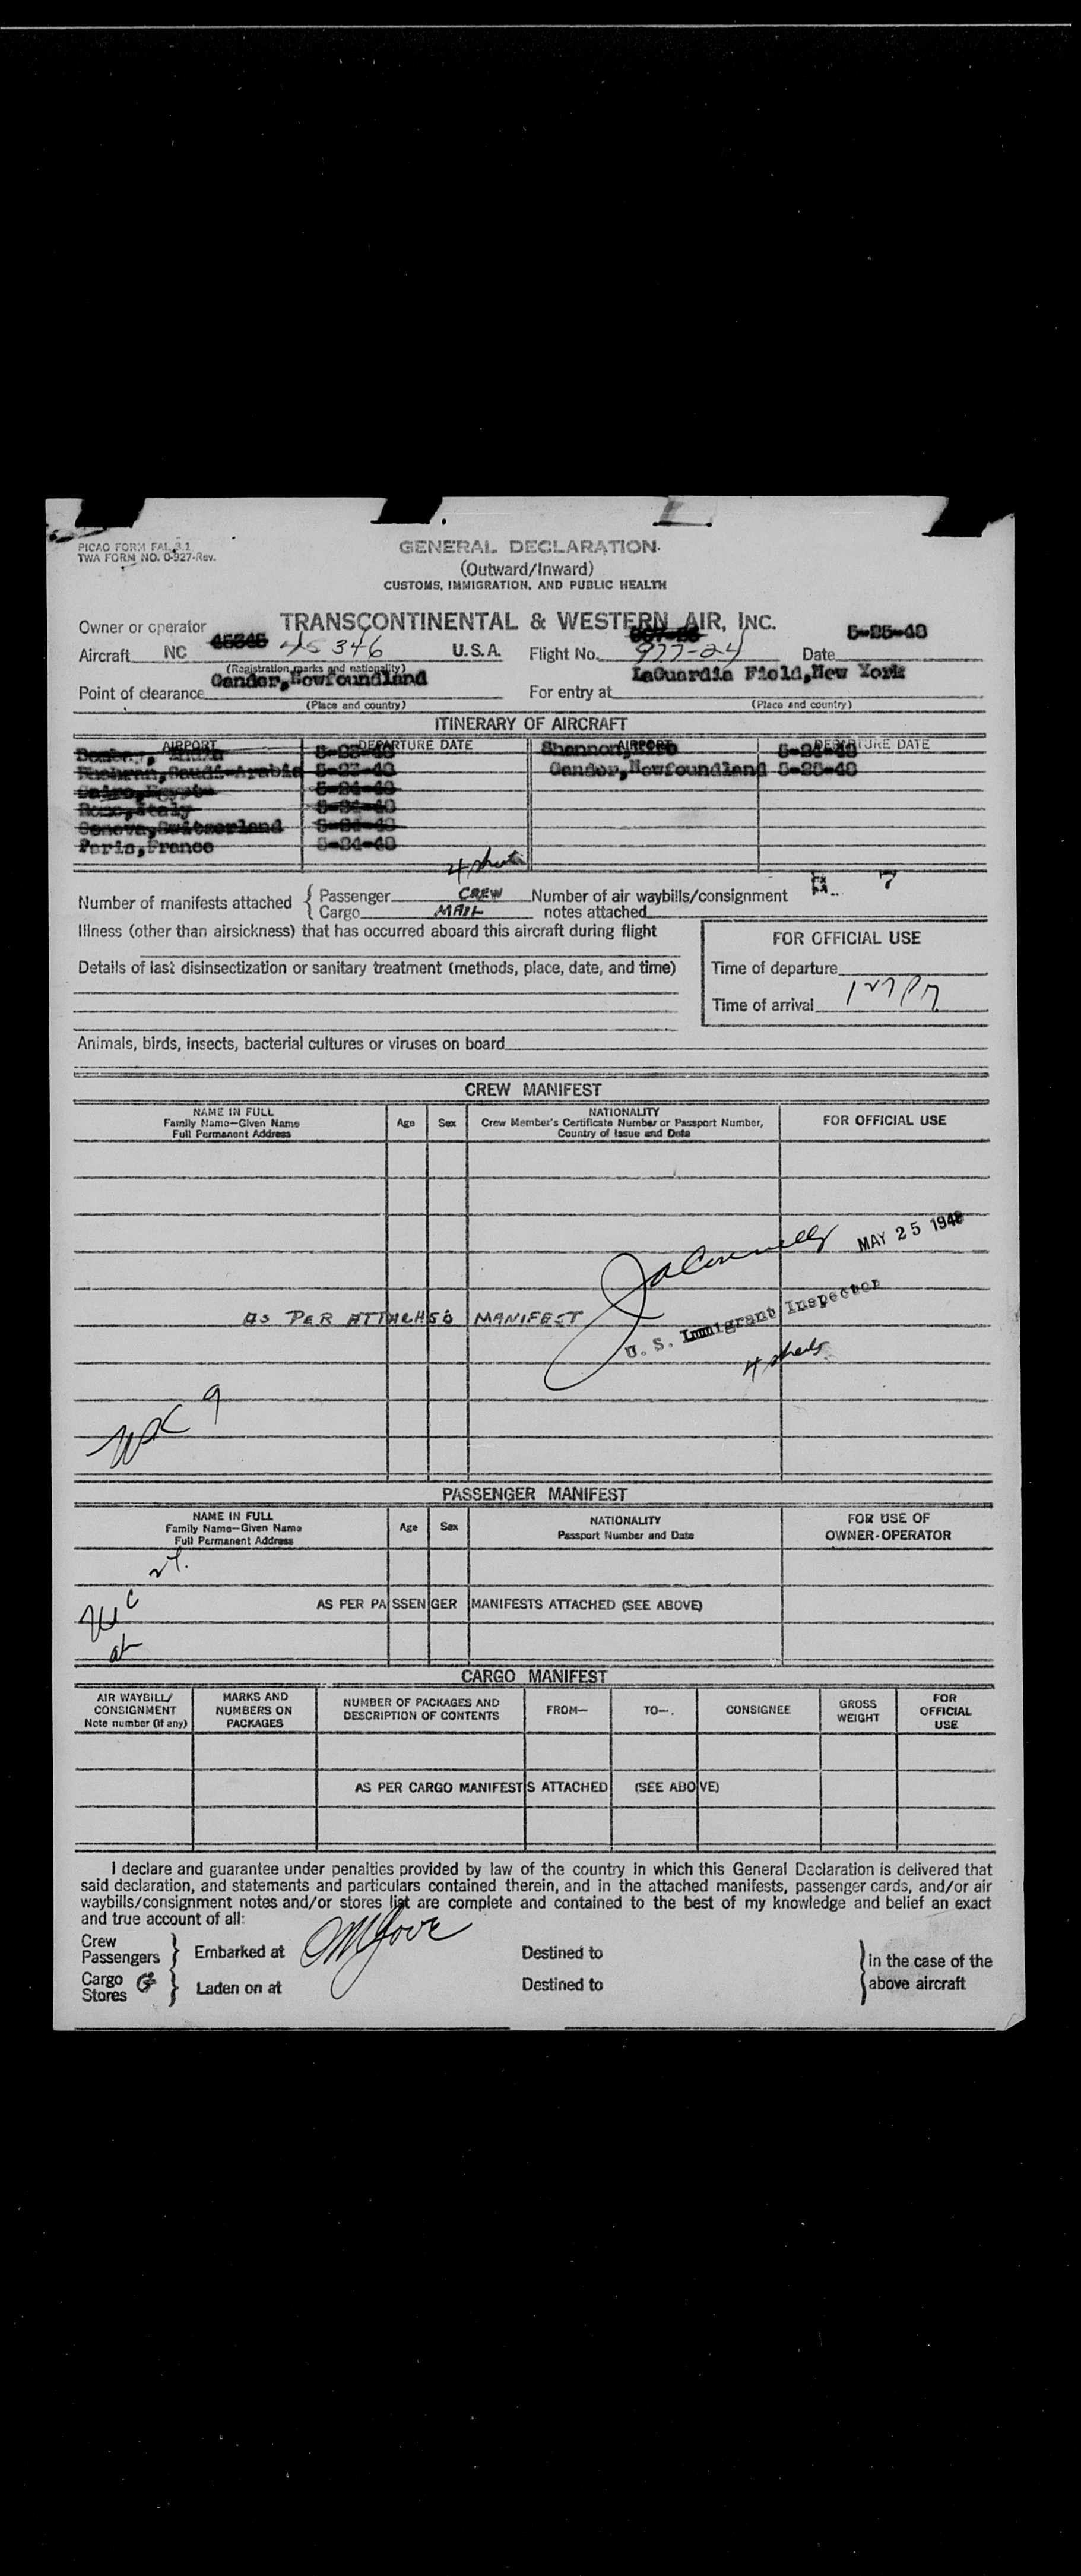 PICAO FORM FAL 3.1
TWA FORM NO. 0-927-Rev.
GENERAL DECLARATION
(Outward/Inward)
CUSTOMS, IMMIGRATION, AND PUBLIC HEALTH
Owner or operator TRANSCONTINENTAL & WESTERN AIR, INC.
Aircraft NC 45346 U.S.A. Flight No. 977-24 Date 5-25-48
(Registration marks and nationality)
Point of clearance Gander, Newfoundland For entry at LaGuardia Field, New York
(Place and country) (Place and country)
ITINERARY OF AIRCRAFT
AIRPORT DEPARTURE DATE AIRPORT DEPARTURE DATE
Shannon, 5-24-48
Dhahran, Saudi-Arabia 5-23-48 Gander, Newfoundland 5-25-48
Cairo, Egypt 5-24-48
Rome, Italy 5-24-48
Geneva, Switzerland 5-24-48
Paris, France 5-24-48
4 sheets
Number of manifests attached { Passenger CREW Number of air waybills/consignment 7
Cargo MAIL notes attached
Illness (other than airsickness) that has occurred aboard this aircraft during flight
FOR OFFICIAL USE
Details of last disinsectization or sanitary treatment (methods, place, date, and time)
Time of departure
Time of arrival
Animals, birds, insects, bacterial cultures or viruses on board
CREW MANIFEST
NAME IN FULL
Family Name—Given Name
Full Permanent Address
Age
Sex
NATIONALITY
Crew Member's Certificate Number or Passport Number,
Country of Issue and Date
FOR OFFICIAL USE
MAY 25 1948
AS PER ATTACHED MANIFEST
U. S. Immigrant Inspector
4 sheets
9
PASSENGER MANIFEST
NAME IN FULL
Family Name—Given Name
Full Permanent Address
Age
Sex
NATIONALITY
Passport Number and Date
FOR USE OF
OWNER-OPERATOR
AS PER PASSENGER MANIFESTS ATTACHED (SEE ABOVE)
CARGO MANIFEST
AIR WAYBILL/
CONSIGNMENT
Note number (if any)
MARKS AND
NUMBERS ON
PACKAGES
NUMBER OF PACKAGES AND
DESCRIPTION OF CONTENTS
FROM—
TO—
CONSIGNEE
GROSS
WEIGHT
FOR
OFFICIAL
USE
AS PER CARGO MANIFESTS ATTACHED (SEE ABOVE)
I declare and guarantee under penalties provided by law of the country in which this General Declaration is delivered that
said declaration, and statements and particulars contained therein, and in the attached manifests, passenger cards, and/or air
waybills/consignment notes and/or stores list are complete and contained to the best of my knowledge and belief an exact
and true account of all:
Crew
Passengers } Embarked at Destined to
Cargo
Stores } Laden on at Destined to
in the case of the
above aircraft